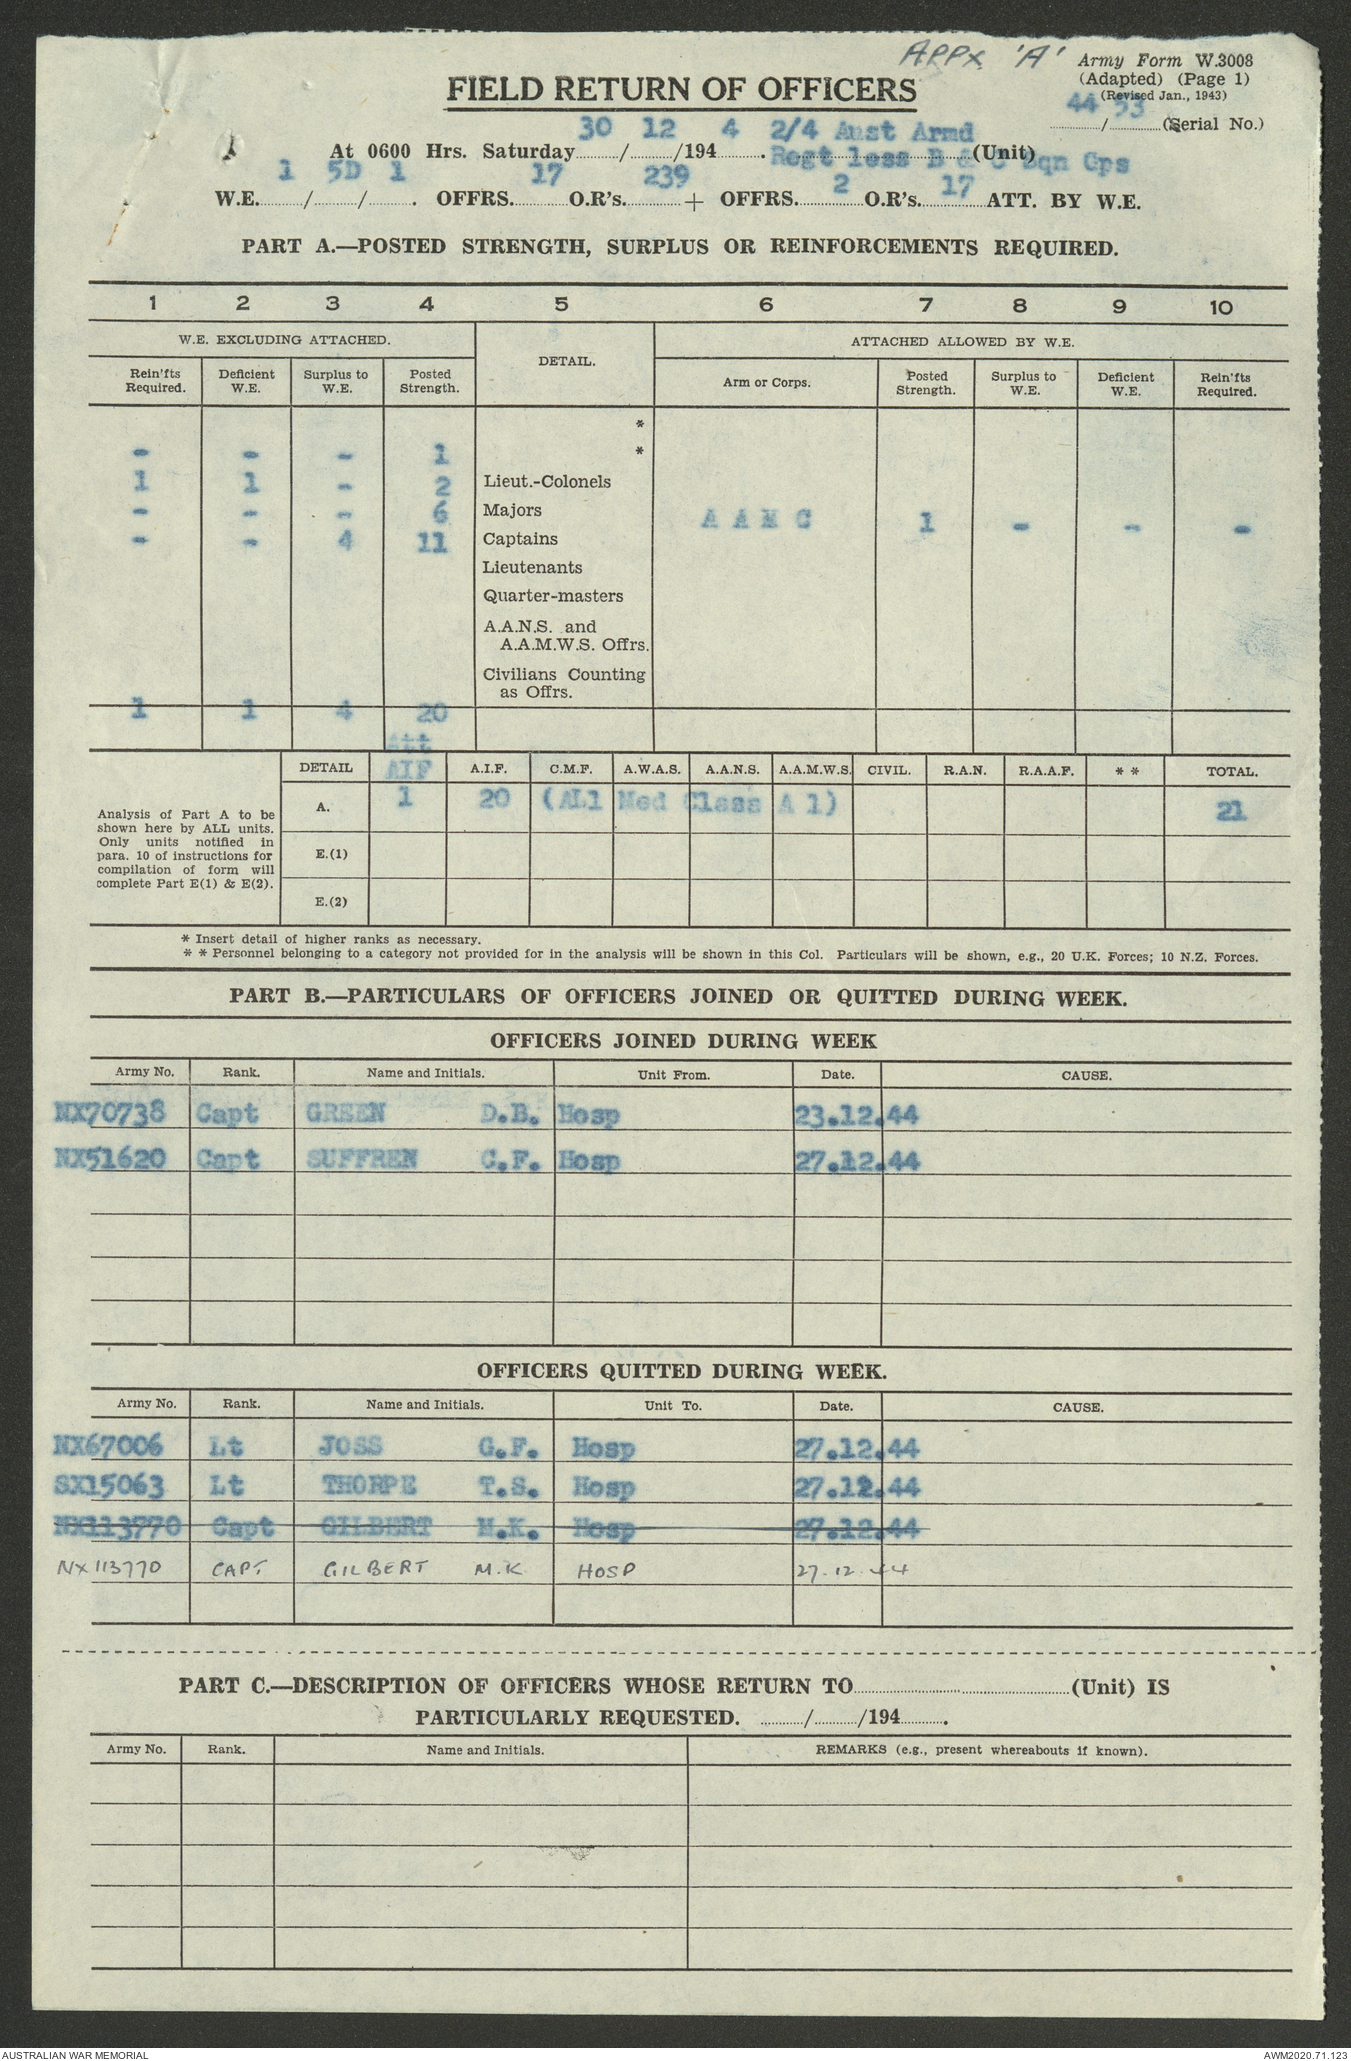 APPX 'A'
Army Form W.3008
(Adapted) (Page 1)
(Revised Jan., 1943)
FIELD RETURN OF OFFICERS
44 53
........../..........(Serial No.)
30 12 4 2/4 Aust Armd
At 0600 Hrs. Saturday........../........../194.......... . Regt less B & C Sqn Gps (Unit)
1 5D 1 17 239 2 17
W.E........../........../.......... . OFFRS...........O.R's...........+ OFFRS...........O.R's...........ATT. BY W.E.
PART A.—POSTED STRENGTH, SURPLUS OR REINFORCEMENTS REQUIRED.
1 2 3 4 5 6 7 8 9 10
W.E. EXCLUDING ATTACHED. DETAIL. ATTACHED ALLOWED BY W.E.
Rein'fts Required. Deficient W.E. Surplus to W.E. Posted Strength. Arm or Corps. Posted Strength. Surplus to W.E. Deficient W.E. Rein'fts Required.
*
- - - 1 *
1 1 - 2 Lieut.-Colonels
- - - 6 Majors A A M C 1 - - -
- - 4 11 Captains
Lieutenants
Quarter-masters
A.A.N.S. and
A.A.M.W.S. Offrs.
Civilians Counting
as Offrs.
1 1 4 20
Att
DETAIL AIF A.I.F. C.M.F. A.W.A.S. A.A.N.S. A.A.M.W.S. CIVIL. R.A.N. R.A.A.F. * * TOTAL.
A. 1 20 (All Med Class A 1) 21
Analysis of Part A to be
shown here by ALL units.
Only units notified in
para. 10 of instructions for
compilation of form will
complete Part E(1) & E(2).
E.(1)
E.(2)
* Insert detail of higher ranks as necessary.
* * Personnel belonging to a category not provided for in the analysis will be shown in this Col. Particulars will be shown, e.g., 20 U.K. Forces; 10 N.Z. Forces.
PART B.—PARTICULARS OF OFFICERS JOINED OR QUITTED DURING WEEK.
OFFICERS JOINED DURING WEEK
Army No. Rank. Name and Initials. Unit From. Date. CAUSE.
NX70738 Capt GREEN D.B. Hosp 23.12.44
NX51620 Capt SUFFREN C.F. Hosp 27.12.44
OFFICERS QUITTED DURING WEEK.
Army No. Rank. Name and Initials. Unit To. Date. CAUSE.
NX67006 Lt JOSS G.F. Hosp 27.12.44
SX15063 Lt THORPE T.S. Hosp 27.12.44
NX113770 Capt GILBERT M.K. Hosp 27.12.44
NX113770 CAPT GILBERT M.K HOSP 27.12.44
PART C.—DESCRIPTION OF OFFICERS WHOSE RETURN TO....................(Unit) IS
PARTICULARLY REQUESTED. ........../........../194.......... .
Army No. Rank. Name and Initials. REMARKS (e.g., present whereabouts if known).
AUSTRALIAN WAR MEMORIAL AWM2020.71.123